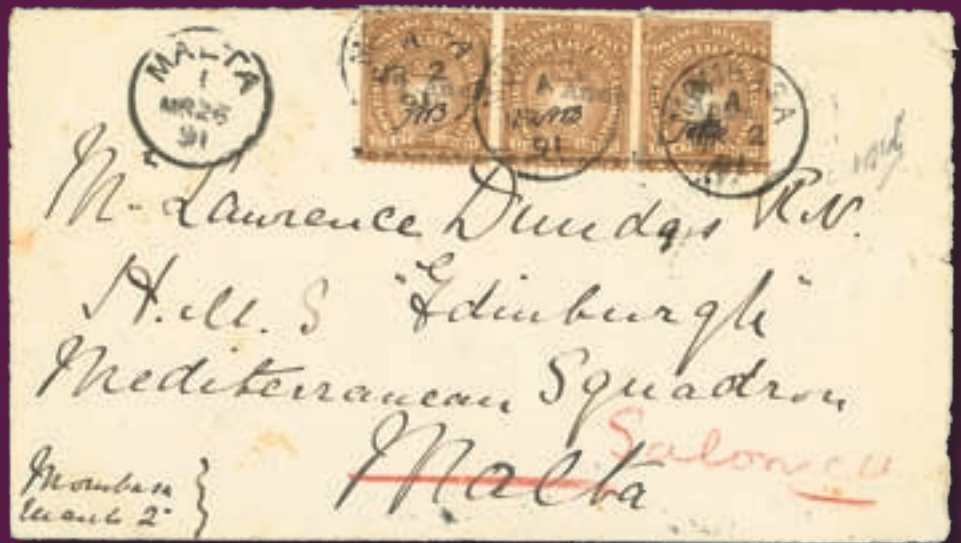 MALTA
1
MR 26
91
A
91
MR 2
91
A
2
Mr Lawrence Dundas R.N.
H.M.S "Edinburgh"
Mediterranean Squadron
Malta
Salonica
Mombasa
March 2